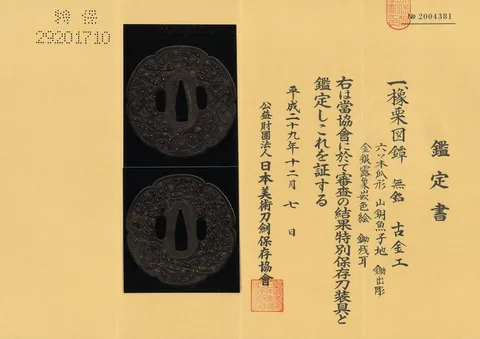 特保
29201710
№ 2004381
鑑定書
一、橡栗図鐔 無銘 古金工
六ッ木瓜形 山銅魚子地 鋤出彫
金銀露象嵌色絵 鋤残耳
右は當協會に於て審査の結果特別保存刀装具と
鑑定しこれを証する
平成二十九年十二月七日
公益財團法人 日本美術刀劍保存協會